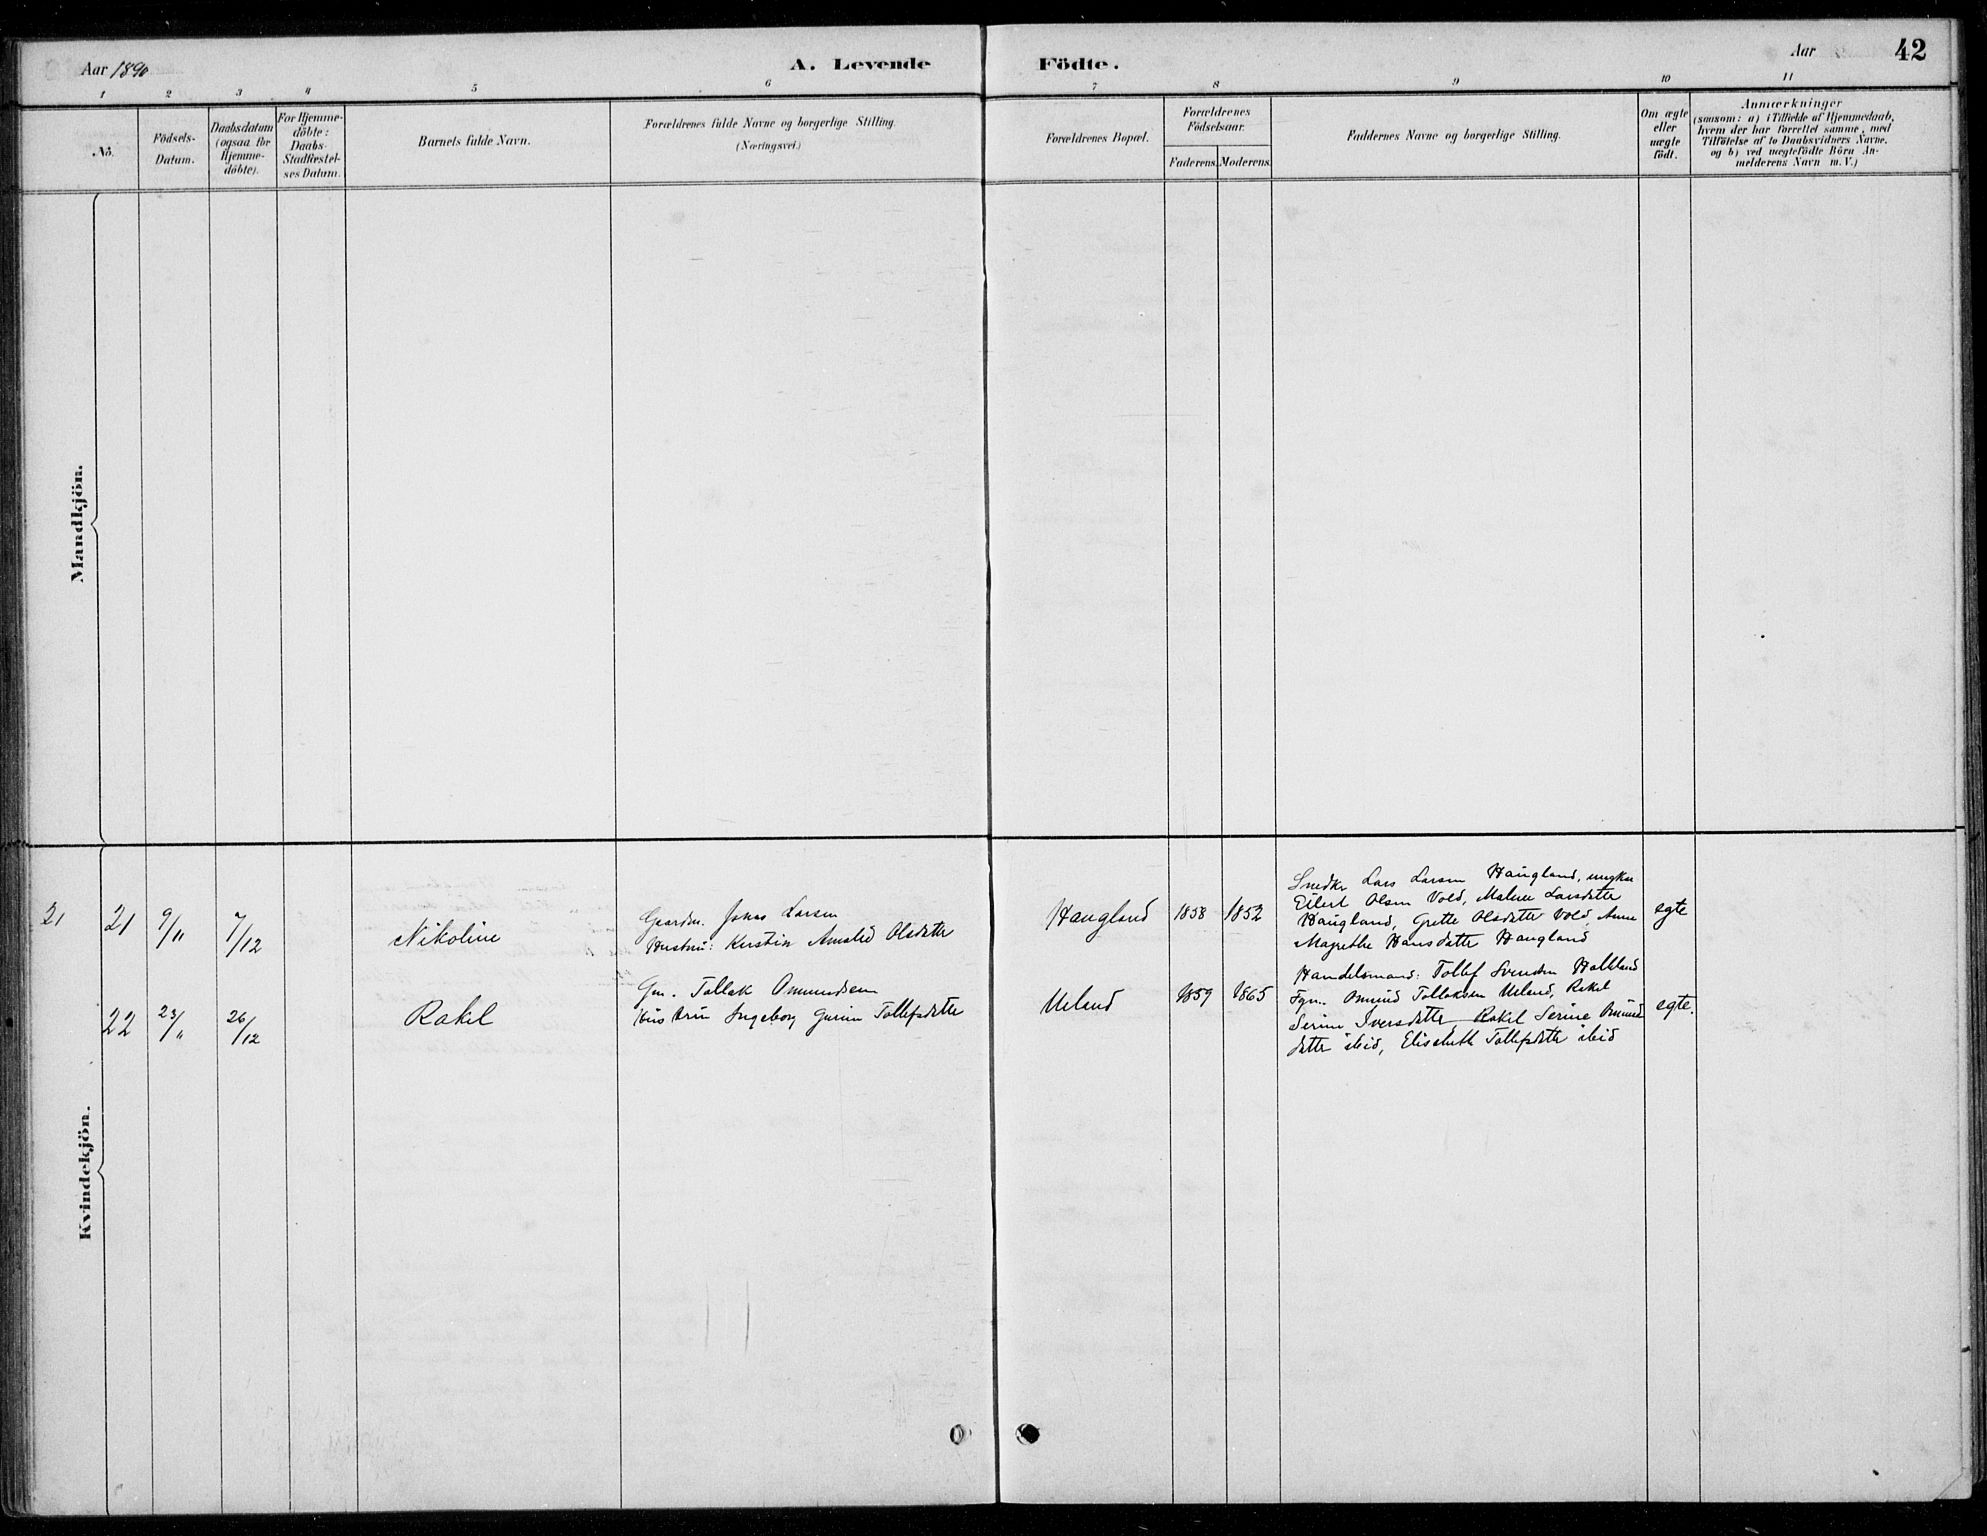 Aar 1890
A. Levende Födte.
Aar
42
1 2 3 4 5 6 7 8 9 10 11
No.
Födsels-
Datum.
Daabsdatum
(ogsaa for
Hjemme-
döbte).
For Hjemme-
döbte:
Daabs-
Stadfæstel-
ses Datum.
Barnets fulde Navn.
Forældrenes fulde Navne og borgerlige Stilling
(Næringsvei.)
Forældrenes Bopæl.
Forældrenes
Födselsaar.
Faderens. Moderens.
Faddernes Navne og borgerlige Stilling.
Om ægte
eller
uægte
födt.
Anmærkninger
(saasom: a) i Tilfælde af Hjemmedaab,
hvem der har forrettet samme, med
Tilföielse af to Daabsvidners Navne.
og b) ved uægtefödte Börn An-
melderens Navn m. V.)
Mandkjön.
Kvindekjön.
21 21 9/11 7/12
Nikoline
Gaardm. Jonas Larsen
Hustru: Kerstin Amalie Olsdatter
Haugland 1858 1852
Snedker Lars Larsen Haugland, ungkar
Eilert Olsen Vold, Malene Larsdatter
Haugland, Grette Olsdatter Vold, Anne
Magrethe Hansdatter Haugland
egte
22 23/11 26/12
Rakel
Gm. Tollak Omundsen
Hustru Ingeborg Gurine Tollefsdatter
Ueland 1859 1865
Handelsmand: Tollef Svendsen
Omund Tollaksen Ueland, Rakel
Serine Iversdatter Rakel Serine Omund
datter ibid, Elisabeth Tollefsdatter ibid
egte.